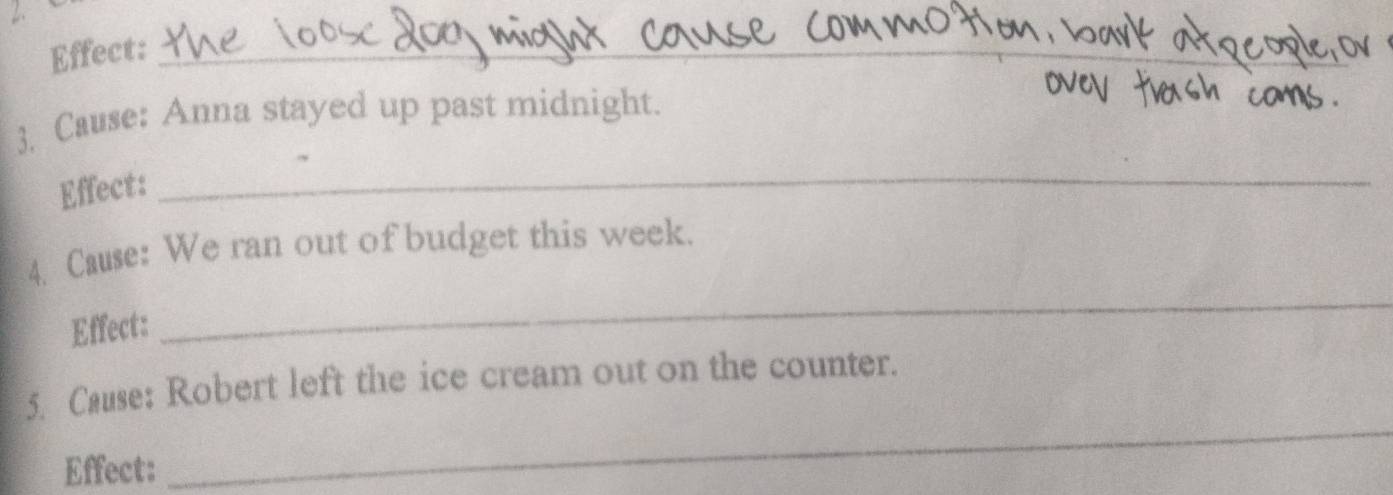 2.
Effect: the loose dog might cause commotion, bark at people, or
over trash cans.
3. Cause: Anna stayed up past midnight.
Effect:
4. Cause: We ran out of budget this week.
Effect:
5. Cause: Robert left the ice cream out on the counter.
Effect: